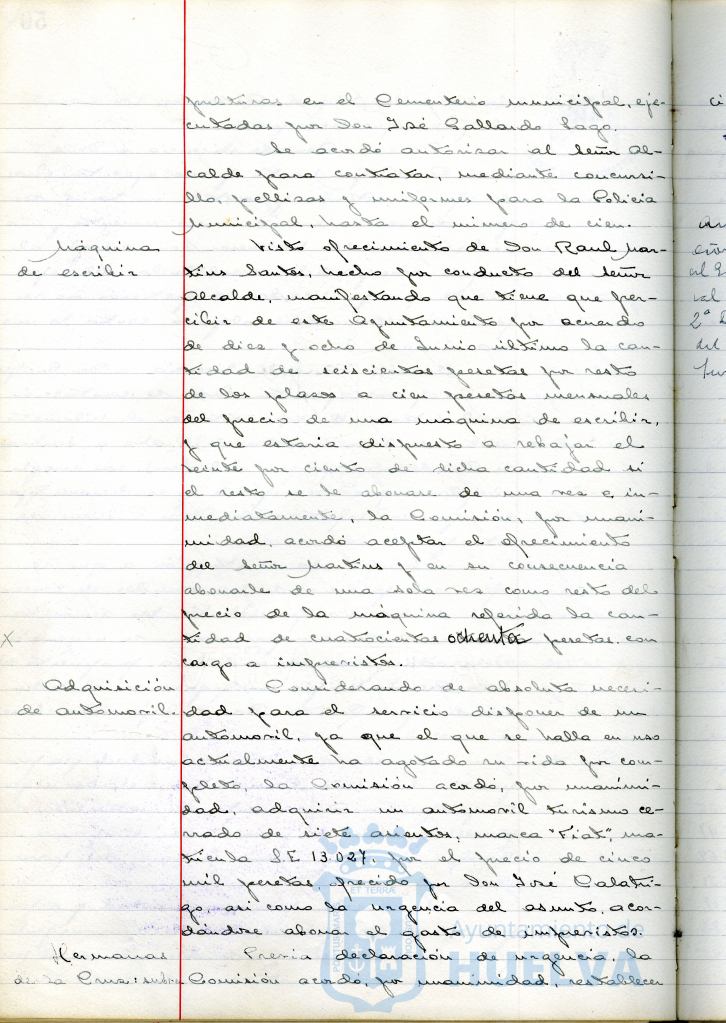 pulturas en el Cementerio municipal, eje-
cutadas por Don José Gallardo Lago.
Se acordó autorizar al Señor Al-
calde para contratar, mediante concursi-
llo, pellizas y uniformes para la Policía
Municipal, hasta el número de cien.
Máquina
de escribir
Visto ofrecimiento de Don Raul Mar-
tins Santos, hecho por conducto del Señor
Alcalde, manifestando que tiene que per-
cibir de este Ayuntamiento por acuerdo
de diez y ocho de Junio último la can-
tidad de seiscientas pesetas por resto
de los plazos a cien pesetas mensuales
del precio de una máquina de escribir,
y que estaría dispuesto a rebajar el
veinte por ciento de dicha cantidad si
el resto se le abonase de una vez e in-
mediatamente, la Comisión, por unani-
midad, acordó aceptar el ofrecimiento
del Señor Martins y en su consecuencia
abonarle de una sola vez como resto del
precio de la máquina referida la can-
X tidad de cuatrocientas ochenta pesetas con
cargo a imprevistos.
Adquisición
de automovil.
Considerando de absoluta necesi-
dad para el servicio disponer de un
automovil, ya que el que se halla en uso
actualmente ha agotado su vida por com-
pleto, la Comisión acordó, por unanimi-
dad, adquirir un automovil turismo ce-
rrado de siete asientos, marca "Fiat", ma-
trícula S.E 13.027, por el precio de cinco
mil pesetas, ofrecido por Don José Calatri-
go, así como la urgencia del asunto, acor-
dándose abonar el gasto de imprevistos.
Hermanas
de la Cruz: subv
Previa declaración de urgencia, la
Comisión acordó, por unanimidad, restablecer
Ayuntamiento de
HUELVA